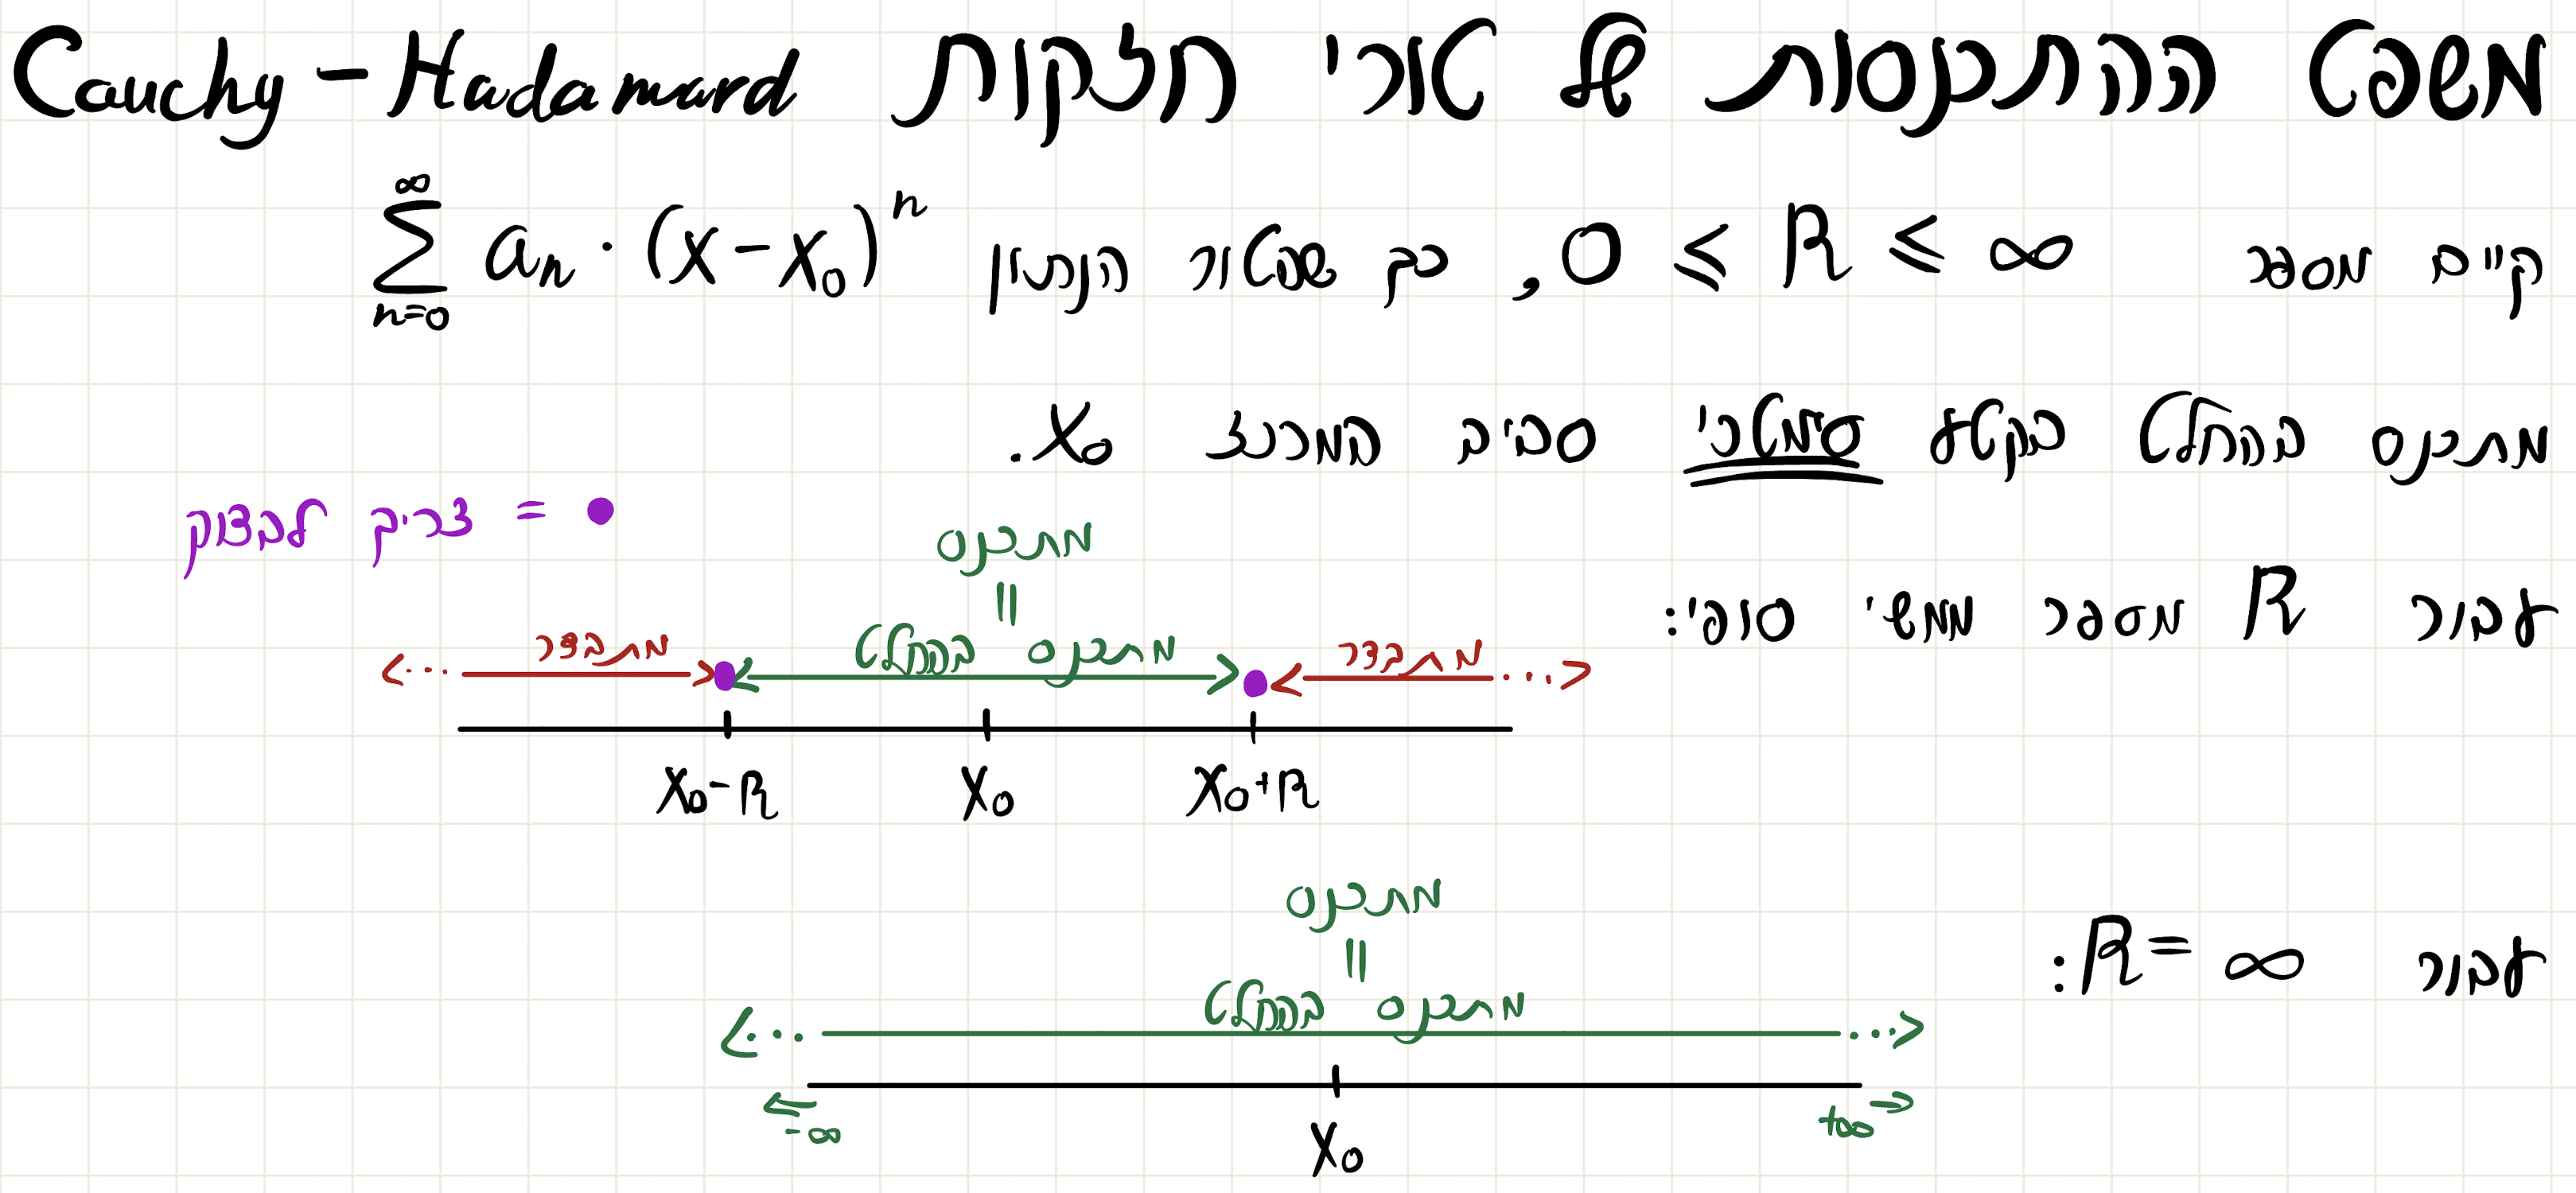 משפט ההתכנסות של טורי חזקות Cauchy-Hadamard
קיים מספר 0 ≤ R ≤ ∞, כך שהטור הנתון \sum_{n=0}^{∞} a_n · (x-x_0)^n
מתכנס בהחלט בקטע סימטרי סביב המרכז x_0.
● = צריך לבדוק
עבור R מספר ממשי סופי:
מתכנס
=
מתבדר מתכנס בהחלט מתבדר
x_0-R x_0 x_0+R
עבור R = ∞:
מתכנס
=
מתכנס בהחלט
-∞ +∞
x_0